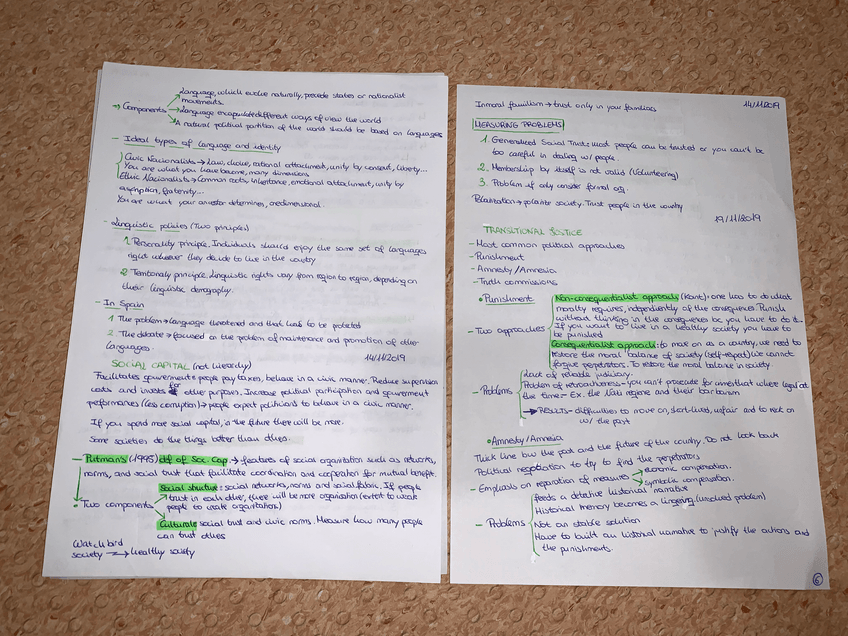 Language, which evolve naturally, precede states or nationalist
movements.
→ Components → Language encapsulate different ways of view the world
A natural political partition of the world should be based on languages
- Ideal types of language and identity
Civic Nationalists → Law, choice, rational attachment, unity by consent, liberty...
You are what you have become, many dimensions.
Ethnic Nationalists → Common roots, inheritance, emotional attachment, unity by
ascription, fraternity...
You are what your ancestor determines, onedimensional.
- Linguistic policies (Two principles)
1. Personality principle. Individuals should enjoy the same set of languages
right wherever they decide to live in the country
2. Territorialy principle. Linguistic rights vary from region to region, depending on
their linguistic demography.
- In Spain
1. The problem → language threatened and that has to be protected
2. The debate → focused on the problem of maintenance and promotion of other
languages.
14/11/2019
SOCIAL CAPITAL (not hierarchy)
Facilitates government: people pay taxes, behave in a civic manner. Reduce supervision
costs and invests for other purposes. Increase political participation and government
performances (less corruption) → people expect politicians to behave in a civic manner.
If you spend more social capital, in the future there will be more.
Some societies do the things better than others.
- Putman's (1995) def of Soc. Cap. → features of social organization such as networks,
norms, and social trust that facilitate coordination and cooperation for mutual benefit.
Social structure: social networks, norms and social fabric. If people
trust in each other, there will be more organization (extent to create
people to create organization)
• Two components
Cultural: social trust and civic norms. Measure how many people
can trust others
Watch bird
society → healthy society
Inmoral familism → trust only in your families
14/11/2019
MEASURING PROBLEMS
1. Generalized Social Trust: most people can be trusted or you can't be
too careful in dealing w/ people.
2. Membership by itself is not valid (Volunteering)
3. Problem if only consider formal org.
Polarization → polarize society. Trust people in the country
19/11/2019
TRANSITIONAL JUSTICE
- Most common political approaches
- Punishment
- Amnesty/Amnesia
- Truth commissions
• Punishment
Non-consequentialist approach (Kant): one has to do what
morality requires, independently of the consequences. Punish
without thinking in the consequences bc you have to do it.
- Two approaches
If you want to live in a healthy society you have to
be punished
Consequentialist approach: to move on as a country, we need to
restore the moral balance of society (self-respect) we cannot
forgive perpetrators. To restore the moral balance in society
Lack of reliable judiciary.
- Problems
Problem of retroactiveness - you can't prosecute for crimes that where legal at
the time - Ex. the Nazi regime and their barbarism
→ Results - difficulties to move on, short-lived, unfair and to reck on
w/ the past
• Amnesty/Amnesia
Thick line bw the past and the future of the country. Do not look back
Political negotiation to try to find the perpetrators
- Emphasis on reparation of measures → economic compensation.
symbolic compensation.
feeds a detative historical narrative
Historical memory becomes a lingering (unsolved problem)
- Problems
Not an stable solution
Have to built an historical narrative to justify the actions and
the punishments.
6